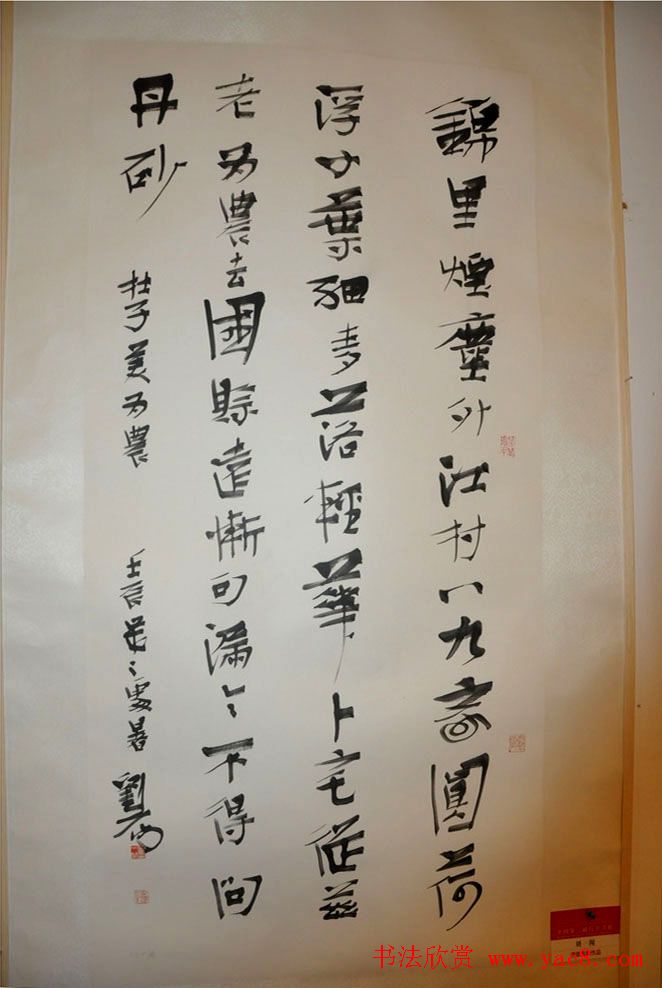 錦里煙塵外江村八九家圓荷
浮小葉細麥落輕華卜宅從茲
老为農去國賒遠慚句漏令不得问
丹砂
杜子美为農
壬辰 處暑 劉
书法欣赏 www.yac8.com